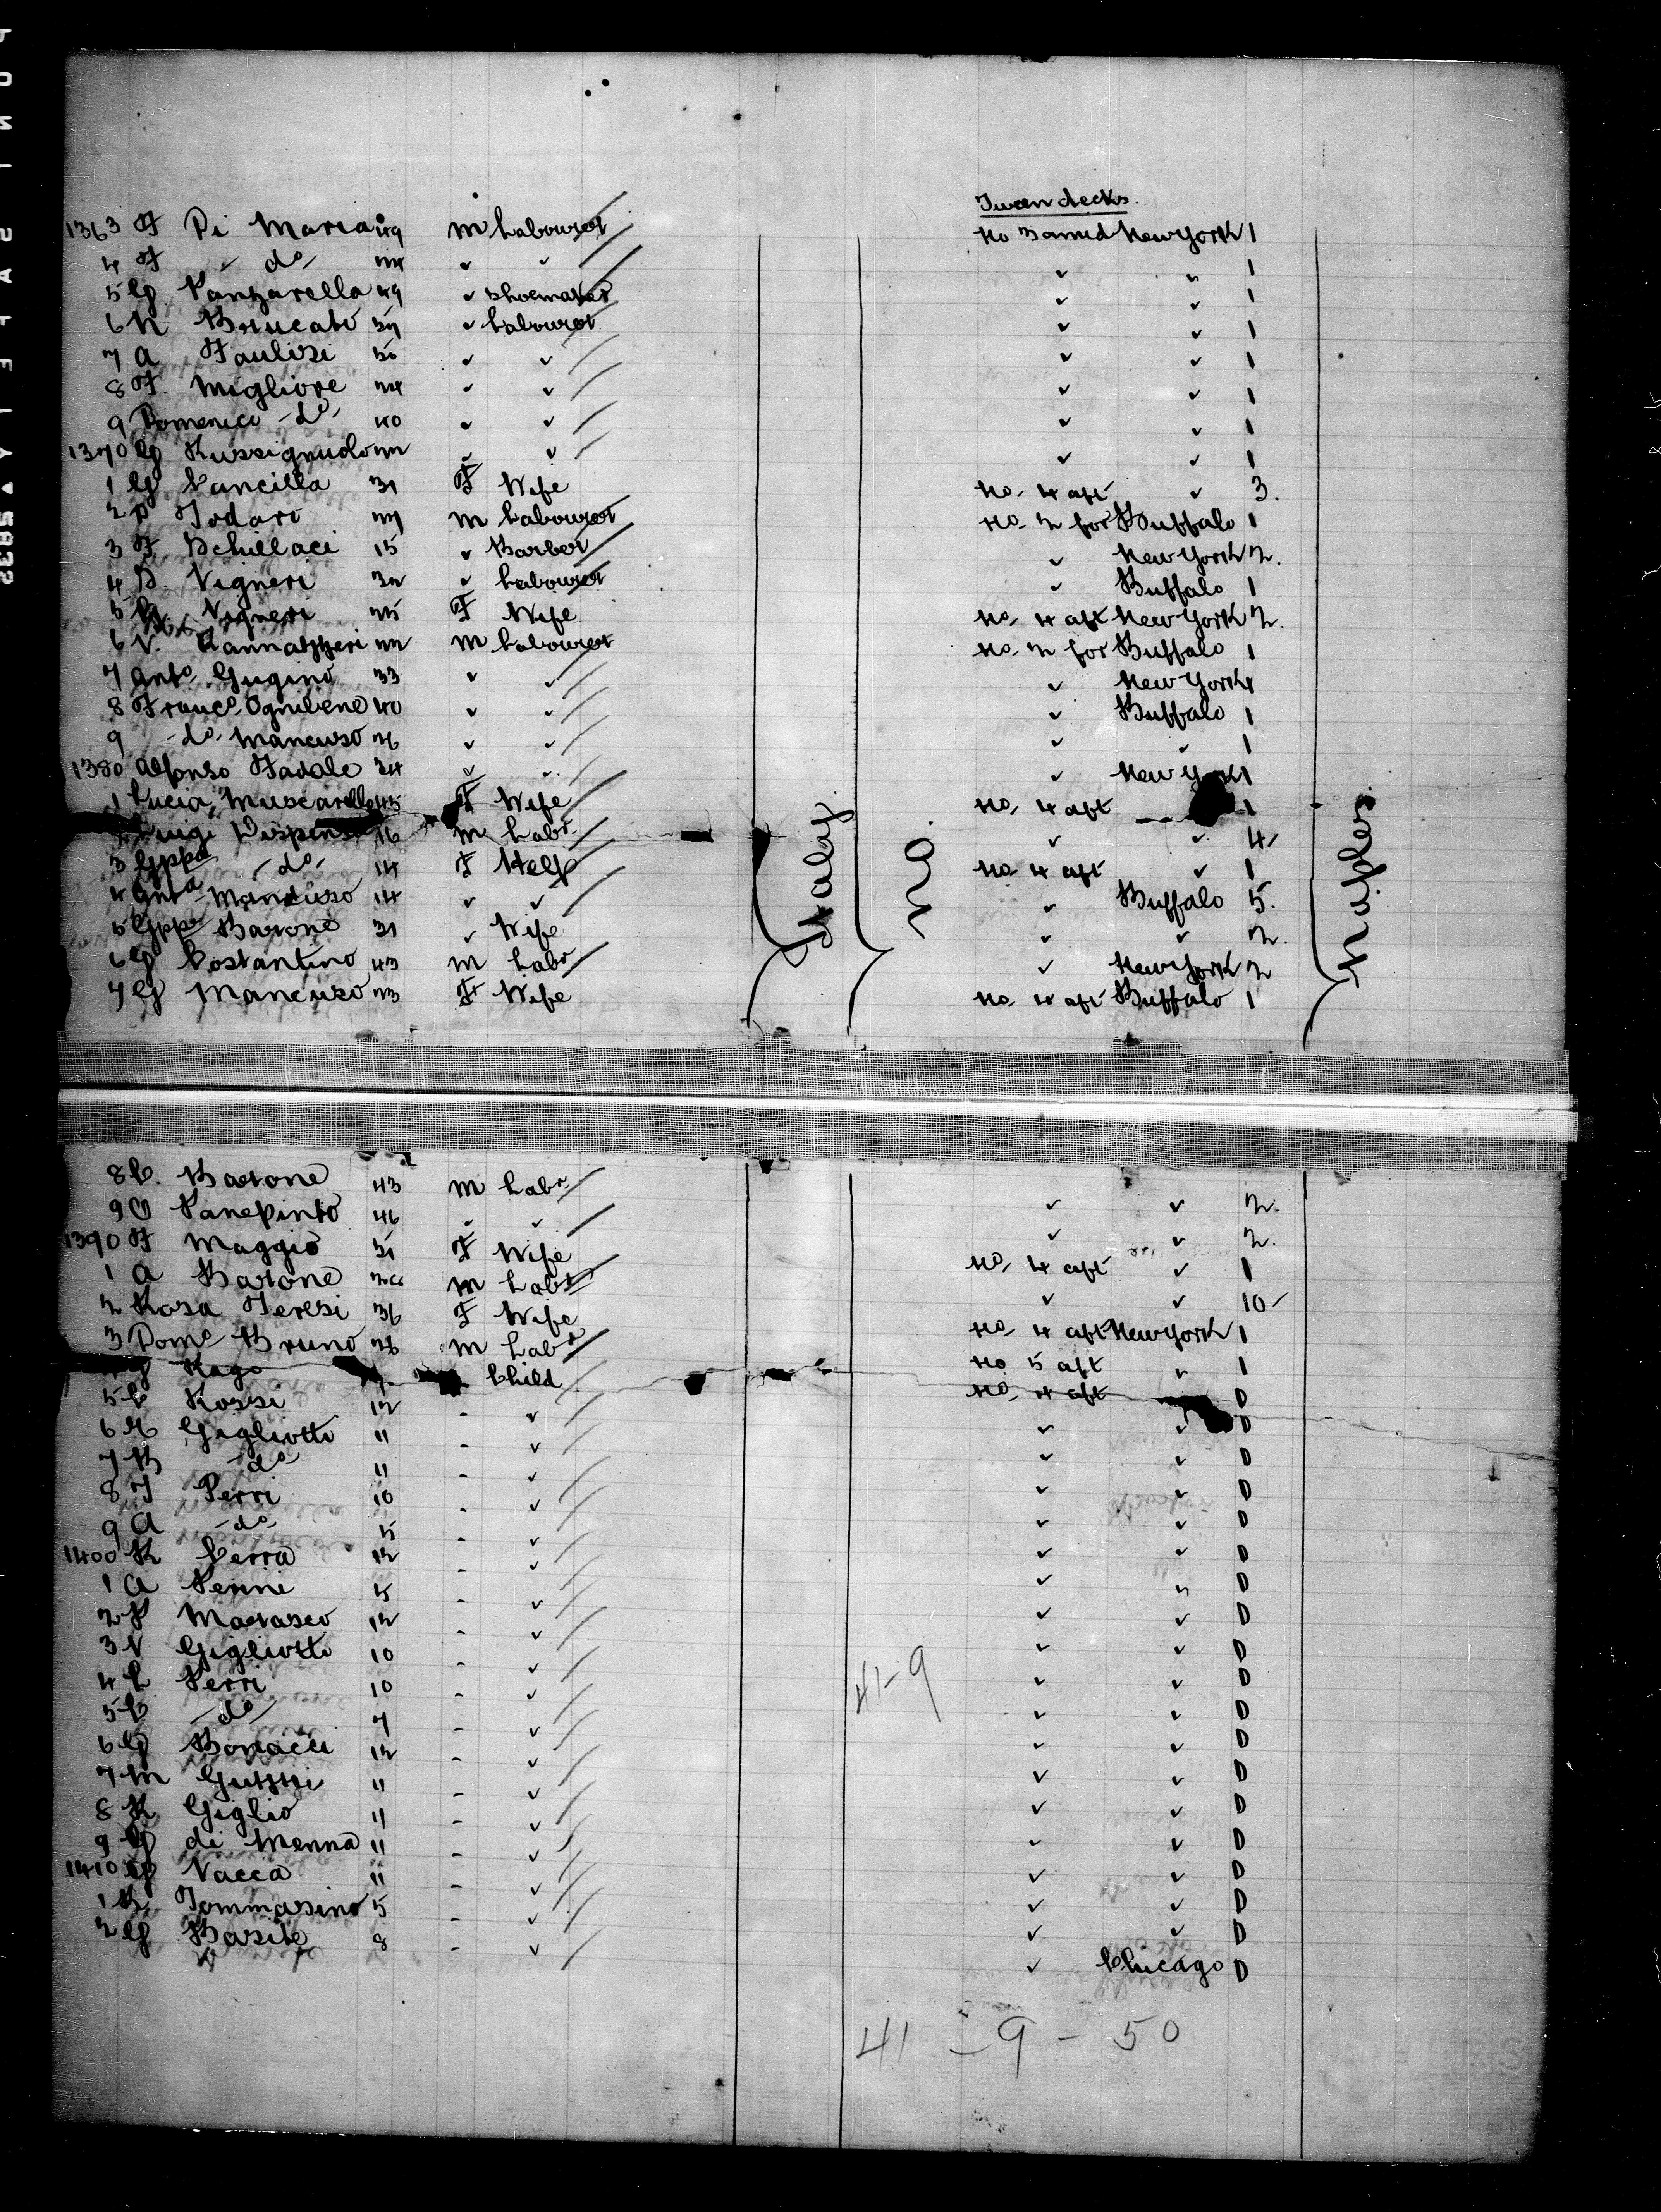 Tween decks.
1363 F Di Maria 49 m Labourer No 3 amid New York 1
4 F " do 44 " " " " 1
5 G Panzarella 49 " Shoemaker " " 1
6 N Brucato 37 " Labourer " " 1
7 A Faulisi 50 " " " " 1
8 F. Migliore 24 " " " " 1
9 Domenico do 40 " " " " 1
1370 G " " " " 1
1 G Cancilla 31 F Wife No. 4 aft " 3.
2 P Todaro 27 m Labourer No. 2 for Buffalo 1
3 F Schillaci 15 " Barber " New York 2.
4 S. Vigneri 32 " Labourer " Buffalo 1
5 Vigneri 25 F Wife No. 4 aft New York 2.
6 V. 22 m Labourer No. 2 for Buffalo 1
7 Anto Gugino 33 " " " New York 1
8 Franco Ognibene 40 " " " Buffalo 1
9 do Mancuso 26 " " " " 1
1380 Alfonso Fadale 34 " " " New York 1
1 Lucia Muscarella 45 F Wife No. 4 aft 1
Luigi Dispensa 16 m Labr " " 4
3 Gppa do 14 F Help No 4 aft " 1
4 Anta Mancuso 14 " " " Buffalo 5.
5 Gppa Barone 31 " Wife " " 2.
6 G Costantino 43 m Labr " New York 2
7 G Mancuso 23 F Wife No. 4 aft Buffalo 1
Italy.
no.
Naples.
8 C. Barone 43 m Labr " " 2.
9 O Panepinto 46 " " " " 2.
1390 F Maggio 51 F Wife No. 4 aft " 1
1 A Barone m Labr " " 10
2 Rosa Teresi 36 F Wife No. 4 aft New York 1
3 Domo Bruno 28 m Labr No 5 aft " 1
Rago Child No. 4 aft D
5 C Rossi 12 - " " " D
6 Gigliotti 11 - " " " D
7 B do 11 - " " " D
8 T Perri 10 - " " " D
9 A do - " " " D
1400 R Serra 12 - " " " D
1 A - " " " D
2 P Marasco 12 - " " " D
3 V Gigliotti 10 - " " " D
4 L Perri 10 - " " " D
41-9
5 C do 7 - " " " D
6 G Bonacci 12 - " " " D
7 M 11 - " " " D
8 R Giglio 11 - " " " D
9 G di Menna 11 - " " " D
1410 G Vacca 11 - " " " D
1 R Tommasino 5 - " " " D
2 G Basile 8 - " " Chicago D
41 - 9 - 50